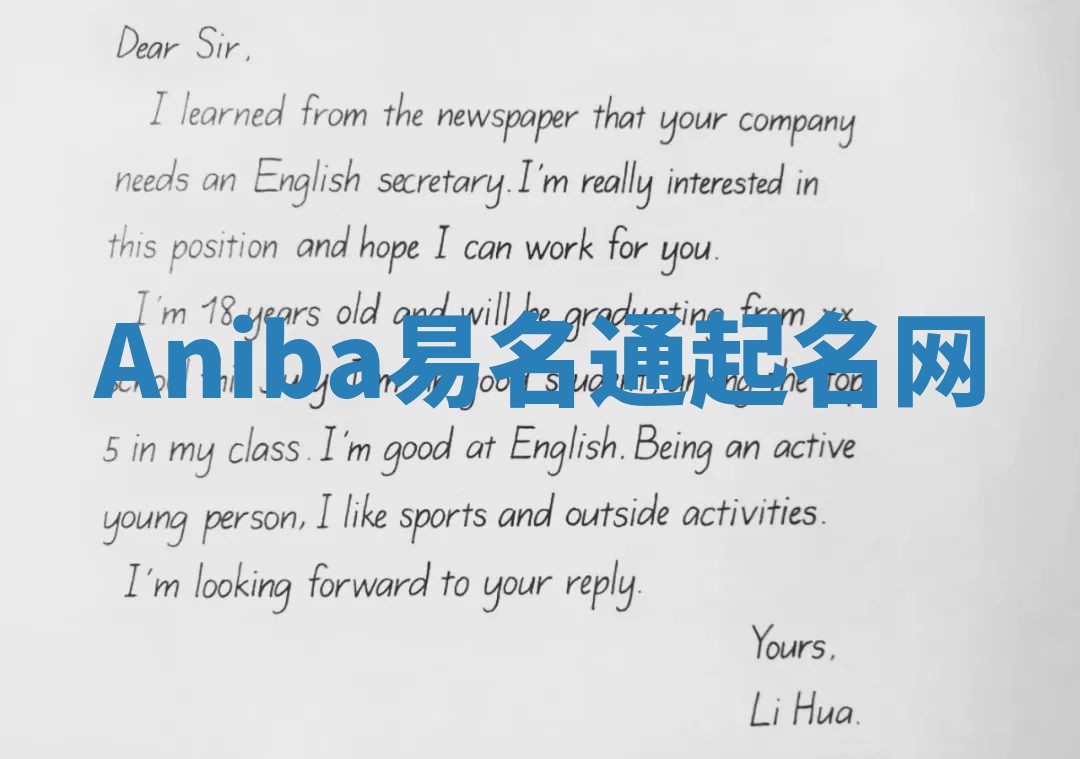 Dear Sir,
I learned from the newspaper that your company
needs an English secretary. I'm really interested in
this position and hope I can work for you.
I'm 18 years old and will be graduating from xx
Aniba易名通起名网
school this July. I'm a good student, among the top
5 in my class. I'm good at English. Being an active
young person, I like sports and outside activities.
I'm looking forward to your reply.
Yours,
Li Hua.